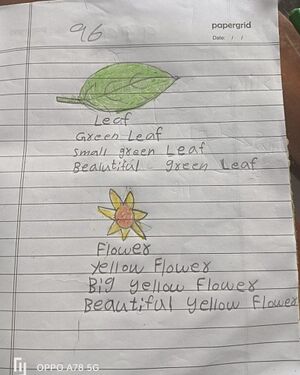 96
papergrid
Date: / /
Leaf
Green Leaf
Small green Leaf
Bealutiful green Leaf
Flower
Yellow Flower
Big yellow Flower
Beautiful yellow Flower
OPPO A78 5G